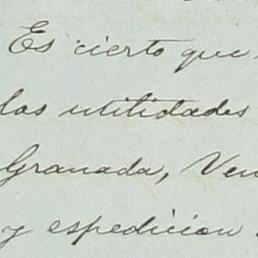 Es cierto que
las utilidades
Granada, Ven
y espedicion